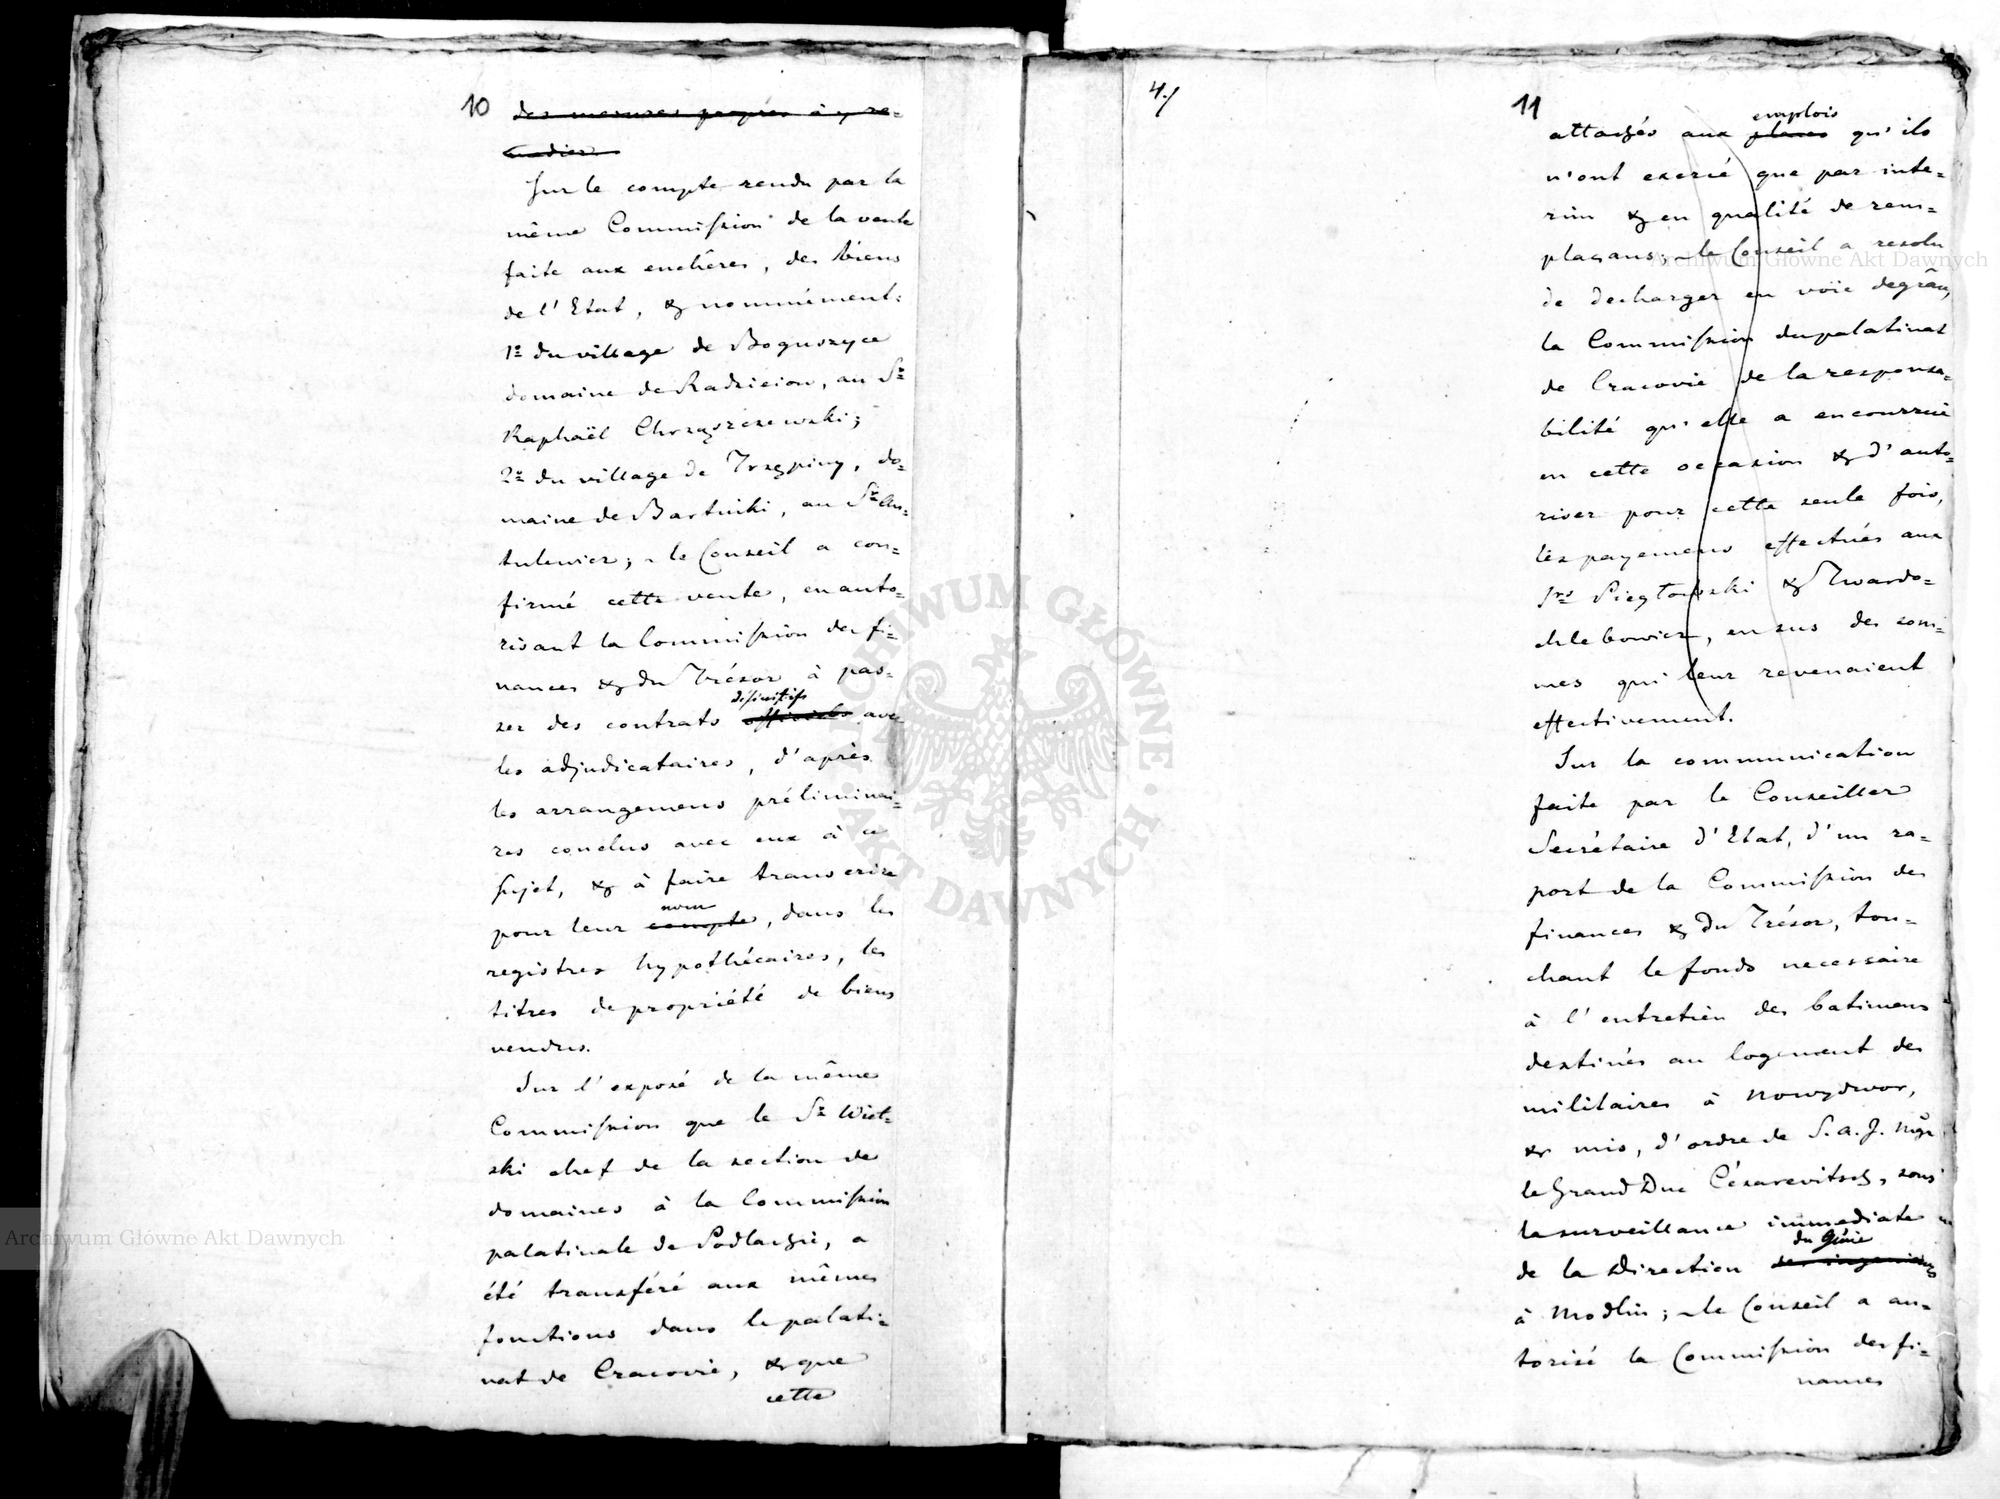 10
des mesures propres à y re-
medier.
Sur le compte rendu par la
même Commission de la vente
faite aux enchêres, des biens
de l'Etat, & nommément:
1º du village de Boguszyce
domaine de Radzieiow, au Sr
Raphaël Chrząszczewski;
2º du village de Trzępiny, do=
maine de Bartniki, au Sr An=
tulewicz; - le Conseil a con=
firmé cette vente, en auto=
risant la Commission des fi=
nances & du Trésor à pas=
définitifs
ser des contrats officiels avec
les adjudicataires, d'après
les arrangemens préliminai=
res conclus avec eux à ce
sujet, & à faire transcrire
nom
pour leur compte, dans les
registres hypothécaires, les
titres de propriété de biens
vendus.
Sur l'exposé de la même
Commission que le Sr Wiel=
ski chef de la section de
domaines à la Commission
palatinale de Podlachie, a
été transféré aux mêmes
fonctions dans le palati=
nat de Cracovie, & que
cette
4./
11
emplois
attachés aux places qu'ils
n'ont exercé que par inte=
rim & en qualité de rem=
plaçans; - le Conseil a resolu
de decharger en voie de grâce,
la Commission du palatinat
de Cracovie de la responsa=
bilité qu'elle a encourrue
en cette occasion & d'auto=
riser pour cette seule fois,
les payemens effectués aux
Srs Piegłowski & Twardo=
chlebowicz, en sus des som=
mes qui leur revenaient
effectivement.
Sur la communication
faite par le Conseiller
Secrétaire d'Etat, d'un ra=
port de la Commission des
finances & du Trésor, tou=
chant le fonds necessaire
à l'entretien des batimens
destinés au logement des
militaires à Nowydwor,
& mis, d'ordre de S. A. I. Mgr
le Grand Duc Césarevitsch, sous
la surveillance immediate
du Génie
de la Direction des ingenieurs
à Modlin; - le Conseil a au=
torisé la Commission des fi=
nances
Archiwum Główne Akt Dawnych
Archiwum Główne Akt Dawnych
ARCHIWUM GŁÓWNE · AKT DAWNYCH ·